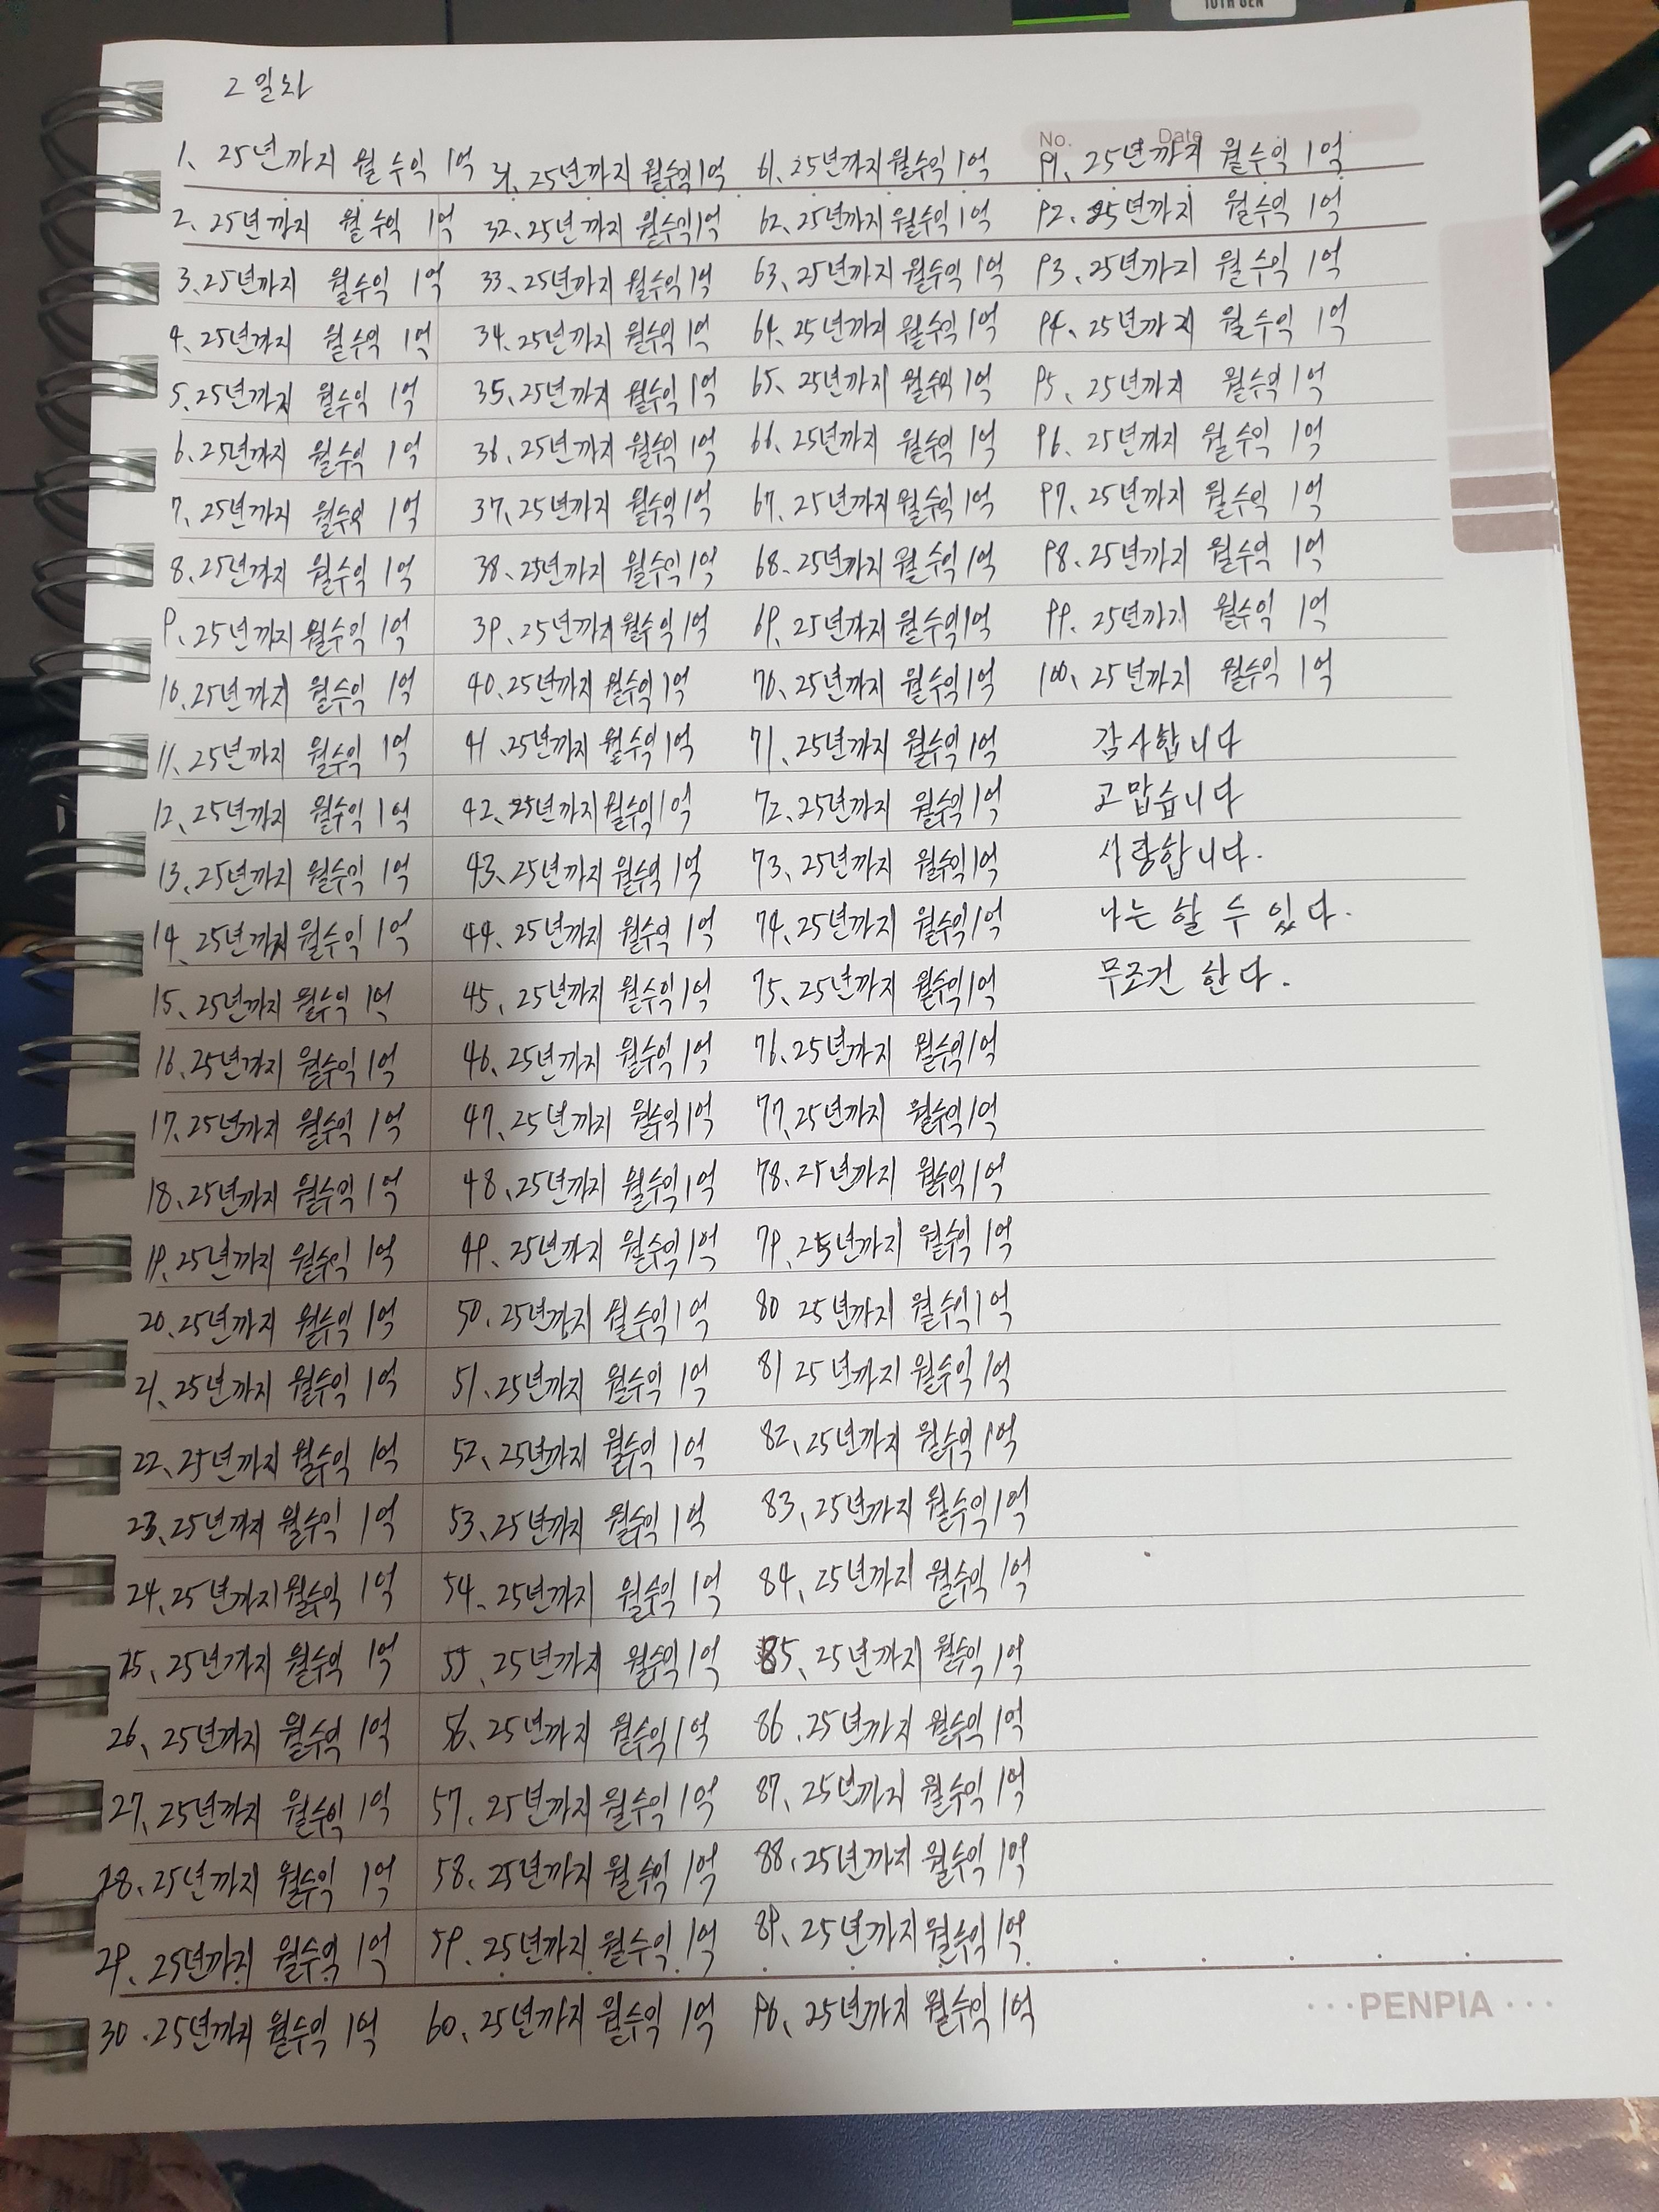 10TH GEN
2일차
No. Date
1. 25년까지 월수익 1억
2. 25년까지 월수익 1억
3. 25년까지 월수익 1억
4. 25년까지 월수익 1억
5. 25년까지 월수익 1억
6. 25년까지 월수익 1억
7. 25년까지 월수익 1억
8. 25년까지 월수익 1억
9. 25년까지 월수익 1억
10. 25년까지 월수익 1억
11. 25년까지 월수익 1억
12. 25년까지 월수익 1억
13. 25년까지 월수익 1억
14. 25년까지 월수익 1억
15. 25년까지 월수익 1억
16. 25년까지 월수익 1억
17. 25년까지 월수익 1억
18. 25년까지 월수익 1억
19. 25년까지 월수익 1억
20. 25년까지 월수익 1억
21. 25년까지 월수익 1억
22. 25년까지 월수익 1억
23. 25년까지 월수익 1억
24. 25년까지 월수익 1억
25. 25년까지 월수익 1억
26. 25년까지 월수익 1억
27. 25년까지 월수익 1억
28. 25년까지 월수익 1억
29. 25년까지 월수익 1억
30. 25년까지 월수익 1억
31. 25년까지 월수익 1억
32. 25년까지 월수익 1억
33. 25년까지 월수익 1억
34. 25년까지 월수익 1억
35. 25년까지 월수익 1억
36. 25년까지 월수익 1억
37. 25년까지 월수익 1억
38. 25년까지 월수익 1억
39. 25년까지 월수익 1억
40. 25년까지 월수익 1억
41. 25년까지 월수익 1억
42. 25년까지 월수익 1억
43. 25년까지 월수익 1억
44. 25년까지 월수익 1억
45. 25년까지 월수익 1억
46. 25년까지 월수익 1억
47. 25년까지 월수익 1억
48. 25년까지 월수익 1억
49. 25년까지 월수익 1억
50. 25년까지 월수익 1억
51. 25년까지 월수익 1억
52. 25년까지 월수익 1억
53. 25년까지 월수익 1억
54. 25년까지 월수익 1억
55. 25년까지 월수익 1억
56. 25년까지 월수익 1억
57. 25년까지 월수익 1억
58. 25년까지 월수익 1억
59. 25년까지 월수익 1억
60. 25년까지 월수익 1억
61. 25년까지 월수익 1억
62. 25년까지 월수익 1억
63. 25년까지 월수익 1억
64. 25년까지 월수익 1억
65. 25년까지 월수익 1억
66. 25년까지 월수익 1억
67. 25년까지 월수익 1억
68. 25년까지 월수익 1억
69. 25년까지 월수익 1억
70. 25년까지 월수익 1억
71. 25년까지 월수익 1억
72. 25년까지 월수익 1억
73. 25년까지 월수익 1억
74. 25년까지 월수익 1억
75. 25년까지 월수익 1억
76. 25년까지 월수익 1억
77. 25년까지 월수익 1억
78. 25년까지 월수익 1억
79. 25년까지 월수익 1억
80 25년까지 월수익 1억
81 25년까지 월수익 1억
82. 25년까지 월수익 1억
83. 25년까지 월수익 1억
84. 25년까지 월수익 1억
85. 25년까지 월수익 1억
86. 25년까지 월수익 1억
87. 25년까지 월수익 1억
88. 25년까지 월수익 1억
89. 25년까지 월수익 1억
90. 25년까지 월수익 1억
91. 25년까지 월수익 1억
92. 25년까지 월수익 1억
93. 25년까지 월수익 1억
94. 25년까지 월수익 1억
95. 25년까지 월수익 1억
96. 25년까지 월수익 1억
97. 25년까지 월수익 1억
98. 25년까지 월수익 1억
99. 25년까지 월수익 1억
100. 25년까지 월수익 1억
감사합니다
고맙습니다
사랑합니다.
나는 할 수 있다.
무조건 한다.
···PENPIA···